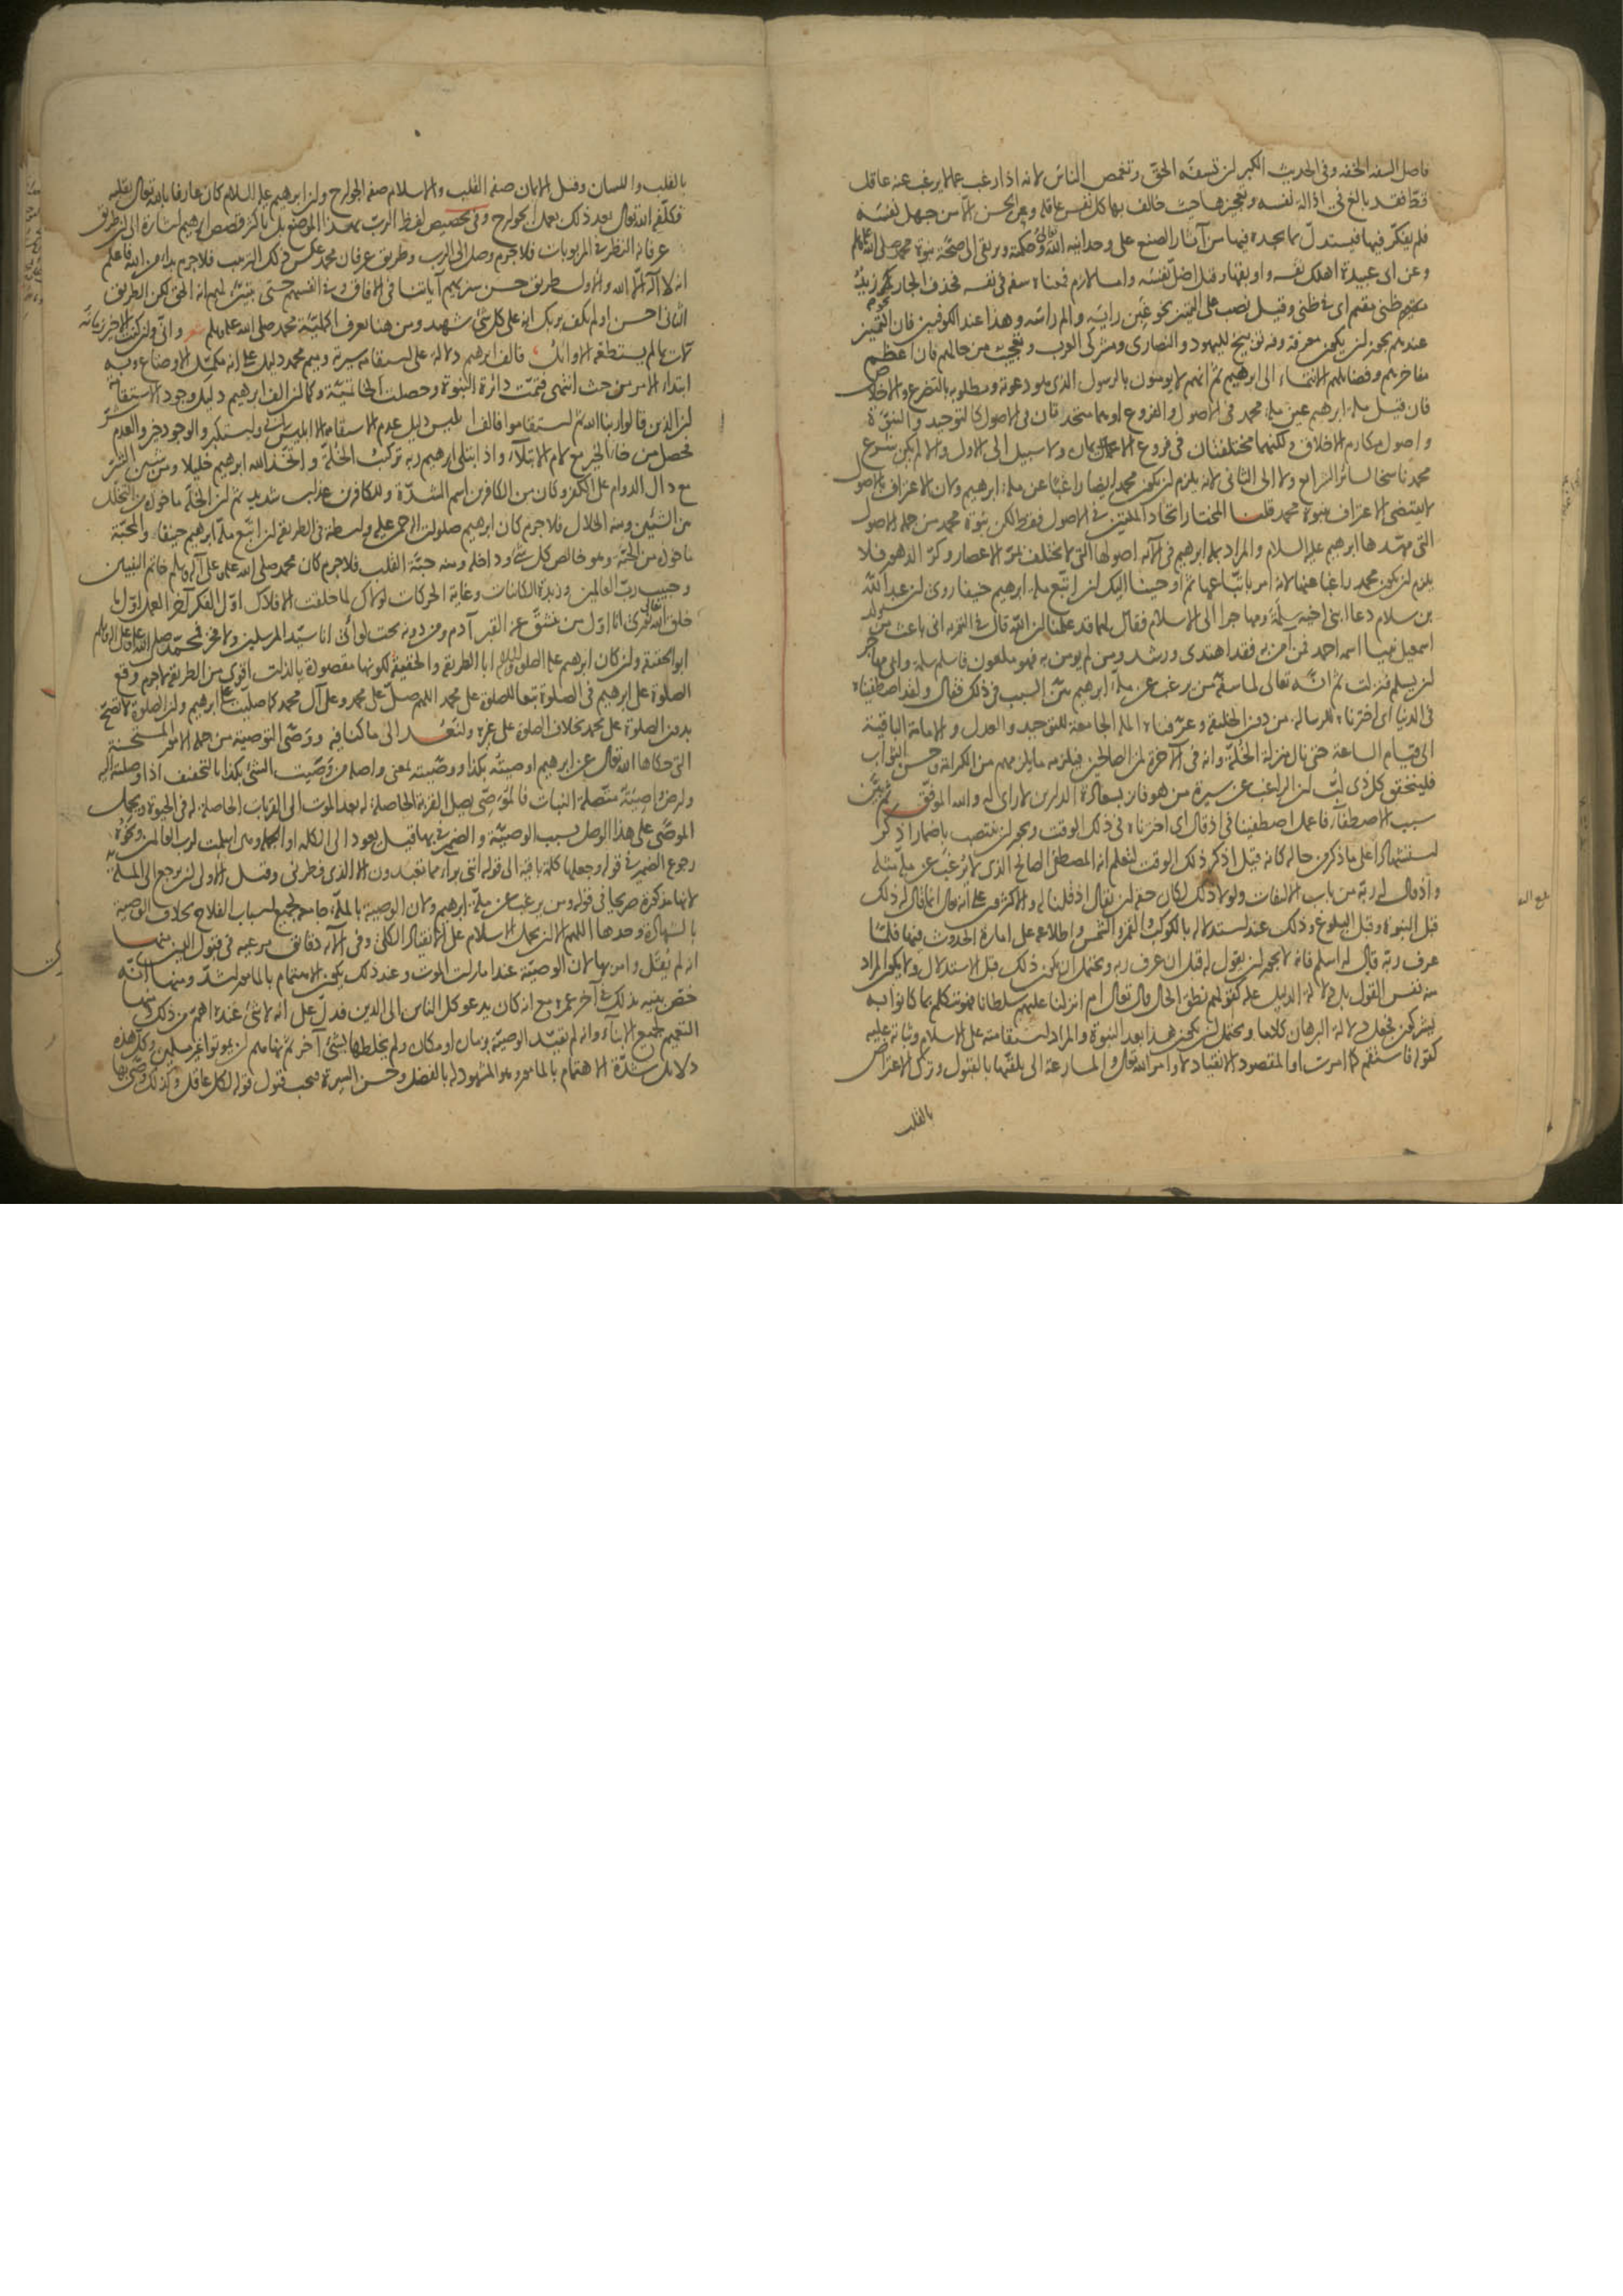 فاصل السفه الخفة وفى الحديث الكبر ان تسفه الحق وتغمص الناس لانه اذا رغب عما لا يرغب عنه عاقل
قط فقد بالغ فى اذالة نفسه وتعجيزها حيث خالف بها كل نفس عاقلة وعن الحسن الا من جهل نفسه
فلم يفكر فيها فيستدل بما يجده فيها من آثار الصنع على وحدانية الله تعالى وحكمته ويرقى الى صحة نبوة محمد صلى الله عليه وسلم
وعن ابى عبيدة اهلك نفسه واوبقها وقيل اضل نفسه واما لازم فمعناه سفه فى نفسه فحذف الجار كقولهم زيد
ظنى مقيم اى فى ظنى وقيل نصب على التمييز نحو غبن رايه والم راسه وهذا عند الكوفيين فان التمييز
عندهم يجوز ان يكون معرفة وفيه توبيخ لليهود والنصارى ومشركى العرب وتعجيب من حالهم فان اعظم
مفاخرهم وفضايلهم الانتماء الى ابرهيم ثم انهم لا يومنون بالرسول الذى هو دعوته ومطلوبه بالتضرع والاخلاص
فان قيل ملة ابرهيم عين ملة محمد فى الاصول والفروع او هما متحدتان فى الاصول كالتوحيد والنبوة
واصول مكارم الاخلاق ولكنهما مختلفتان فى فروع الاعمال ولا سبيل الى الاول والا لم يكن شرع
محمد ناسخا لسائر الشرائع ولا الى الثانى لانه يلزم ان يكون محمد ايضا راغبا عن ملة ابرهيم ولان الاعتراف بالاصول
لا يقتضى الاعتراف بنبوة محمد قلنا المختار اتحاد الملتين فى الاصول فقط لكن نبوة محمد من جملة الاصول
التى مهدها ابرهيم عليه السلام والمراد بملة ابرهيم فى الآية اصولها التى لا تختلف بمر الاعصار وكر الدهور فلا
يلزم ان يكون محمد راغبا عنها لانه امر باتباعها ثم اوحينا اليك ان اتبع ملة ابرهيم حنيفا روى ان عبد الله
بن سلام دعا ابنى اخيه سلمة ومهاجرا الى الاسلام فقال لهما قد علمنا ان الله قال فى التورية انى باعث من ولد
اسمعيل نبيا اسمه احمد فمن آمن به فقد اهتدى ورشد ومن لم يومن به فهو ملعون فاسلم سلمة وابى مهاجر
ان يسلم فنزلت ثم انه تعالى لما سفه من يرغب عن ملة ابرهيم بين السبب فى ذلك فقال ولقد اصطفيناه
فى الدنيا اى اخترناه للرسالة من دون الخليقة وعرفناه الملة الجامعة للتوحيد والعدل والامامة الباقية
الى قيام الساعة حتى نال منزلة الخلة وانه فى الآخرة لمن الصالحين فيلزمه ما يلزمهم من الكرامة وحسن الثواب
فليتحقق كل ذى لب ان الراغب عن سيرة من هو فائز بسعادة الدارين لا راى له والله الموفق ثم بين
سبب الاصطفاء فاعمل اصطفينا فى اذ قال اى اخترناه فى ذلك الوقت ويجوز ان ينتصب باضمار اذكر
استشهادا على ما ذكر من حاله كانه قيل اذكر ذلك الوقت لتعلم انه المصطفى الصالح الذى لا يرغب عن ملة مثله
واذ قال له ربه من باب الالتفات ولولا ذلك لكان حقه ان يقال اذ قلنا له والاكثرون على انه قال انما قال له ذلك
قبل النبوة وقبل البلوغ وذلك عند استدلاله بالكوكب والقمر والشمس واطلاعه على امارة الحدوث فيها فلما
عرف ربه قال له اسلم فانه لا يجوز ان يقول له قبل ان عرف ربه ويحتمل ان يكون ذلك قبل الاستدلال ولا يكون المراد
منه نفس القول بل دلالة الدليل عليه كقولهم نطق الحال قال تعالى ام انزلنا عليهم سلطانا فهو يتكلم بما كانوا به
يشركون فجعل دلالة البرهان كلاما ويحتمل ان يكون هذا بعد النبوة والمراد استقامته على الاسلام وثباته عليه
كقوله فاستقم كما امرت او المقصود الانقياد لاوامر الله تعالى والمسارعة الى تلقيها بالقبول وترك الاعتراض
بالقلب
بالقلب واللسان وقيل الايمان صفة القلب والاسلام صفة الجوارح وان ابرهيم عليه السلام كان عارفا بالله تعالى بقلبه
فكلفه الله تعالى بعد ذلك بعمل الجوارح وفى تخصيص لفظ الرب بهذا الموضع بل باكثر قصص ابرهيم اشارة الى ان طريق
عرفانه النظر فى المربوبات فلا جرم وصل الى الرب وطريق عرفان محمد عكس ذلك الترتيب فلا جرم بدأ من الله فاعلم
انه لا اله الا الله والاول طريق حسن سنريهم آياتنا فى الآفاق وفى انفسهم حتى يتبين لهم انه الحق لكن الطريق
الثانى احسن اولم يكف بربك انه على كل شئ شهيد ومن هنا يعرف اكملية محمد صلى الله عليه وسلم شعر وانى وان كنت الاخير زمانه
لآت بما لم يستطعه الاوائل فالف ابرهيم دلالة على استقامة سيرته وميم محمد دليل على انه مكمل الاوضاع وبه
ابتداء الامر من حيث انتهى فتمت دائرة النبوة وحصلت الخاتمية وكما ان الف ابرهيم دليل وجود الاستقامة
ان الذين قالوا ربنا الله ثم استقاموا فالف ابليس دليل عدم الاستقامة الا ابليس ابى واستكبر والوجود خير والعدم شر
فحصل من خاء الخير مع لام الابتلاء واذ ابتلى ابرهيم ربه تركيب الخلة واتخذ الله ابرهيم خليلا ومن شين الشر
مع دال الدوام على الكفر وكان من الكافرين اسم الشدة وللكافرين عذاب شديد ثم ان الخلة ماخوذة من التخلل
بين الشيئين ومنه الخلال فلا جرم كان ابرهيم صلوات الرحمن عليه واسطة فى الطريقة ان اتبع ملة ابرهيم حنيفا والمحبة
ماخوذة من الحبة وهو خالص كل شئ وداخله ومنه حبة القلب فلا جرم كان محمد صلى الله عليه وعلى آله وسلم خاتم النبيين
وحبيب رب العالمين وزبدة الكائنات وغاية الحركات لولاك لما خلقت الافلاك اول الفكر آخر العمل اول ما
خلق الله تعالى نورى انا اول من ينشق عنه القبر آدم ومن دونه تحت لوائى انا سيد المرسلين ولا فخر فمحمد صلى الله عليه وعلى آله وسلم
ابو الحقيقة وان كان ابرهيم عليه الصلوة والسلام ابا الطريقة والحقيقة لكونها مقصودة بالذات اقوى من الطريقة فلا جرم وقع
الصلوة على ابرهيم فى الصلوة تبعا للصلوة على محمد اللهم صل على محمد وعلى آل محمد كما صليت على ابرهيم وان الصلوة لا تصح
بدون الصلوة على محمد بخلاف الصلوة على غيره ولنعد الى ما كنا فيه ووصى التوصية من جملة الامور المستحسنة
التى حكاها الله تعالى عن ابرهيم اوصيته بكذا ووصيته بمعنى واصله من وصيت الشئ بكذا بالتخفيف اذا وصلته اليه
وارض واصية متصلة النبات فالموصى يصل القربة الحاصلة له بعد الموت الى القربات الحاصلة له فى الحيوة ويحمل
الموصى على هذا الوصل بسبب الوصية والضمير فى بها قيل يعود الى الكلمة او الجملة وهى اسلمت لرب العالمين ونحوه
رجوع الضمير فى قوله وجعلها كلمة باقية الى قوله اننى براء مما تعبدون الا الذى فطرنى وقيل الاولى ان يرجع الى الملة
لانها مذكورة صريحا فى قوله ومن يرغب عن ملة ابرهيم ولان الوصية بالملة جامعة لجميع اسباب الفلاح بخلاف الوصية
بالشهادة وحدها اللهم الا ان يحمل الاسلام على الانقياد الكلى وفى الآية دقائق مرغبة فى قبول الدين منها
انه لم يقل وامر بها لان الوصية عند امارات الموت وعند ذلك يكون الاهتمام بالامور اشد ومنها انه
خص بنيه بذلك فى آخر عمره مع انه كان يدعو كل الناس الى الدين فدل على انه لا شئ عنده اهم من ذلك ومنها
التعميم لجميع الابناء وانه لم يقيد الوصية بزمان او مكان ولم يخلطها بشئ آخر ثم نهاهم ان يموتوا غير مسلمين وكل هذه
دلائل شدة الاهتمام بالامر وهو المشهود له بالفضل وحسن السيرة فيجب قبول قوله لكل عاقل وكذلك وصى بها